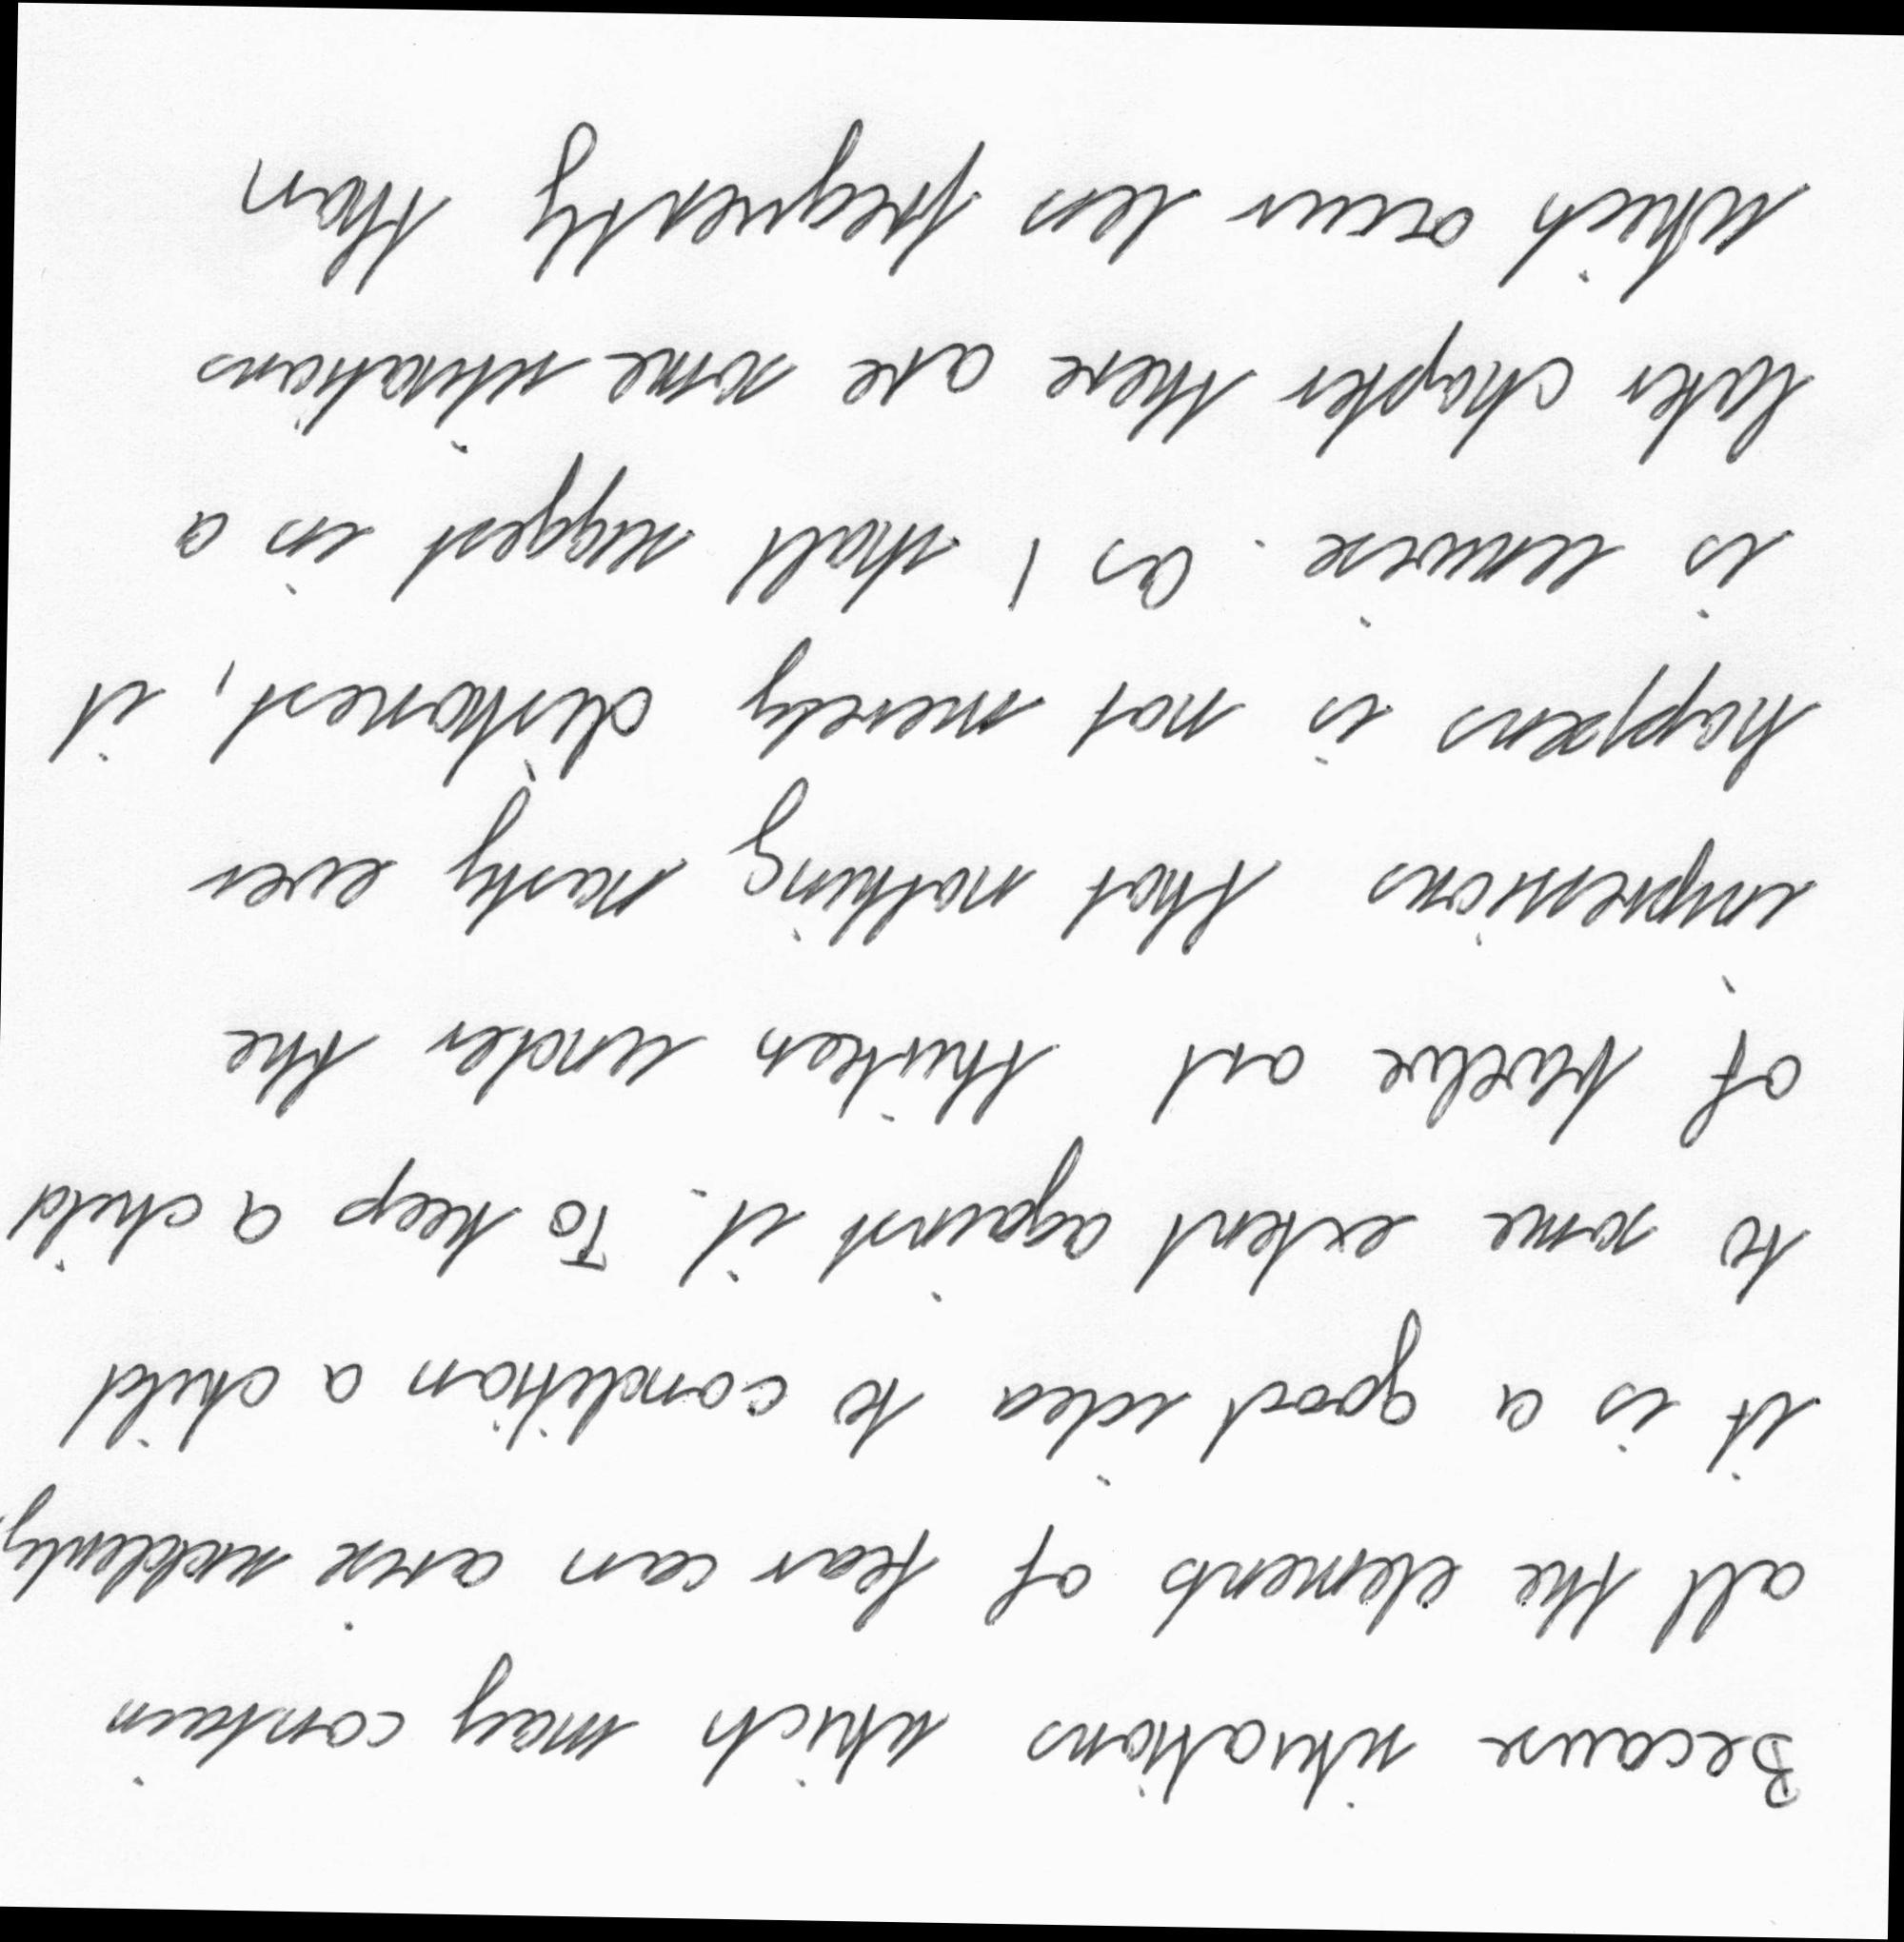 Because situations which may contain
all the elements of fear can arise suddenly,
it is a good idea to condition a child
to some extent against it. To keep a child
of twelve ort thirteen under the
impressions that nothing nasty ever
happens is not merely dishonest, it
is unwise. as I shall suggest in a
later chapter there are some situations
which occur less frequently than